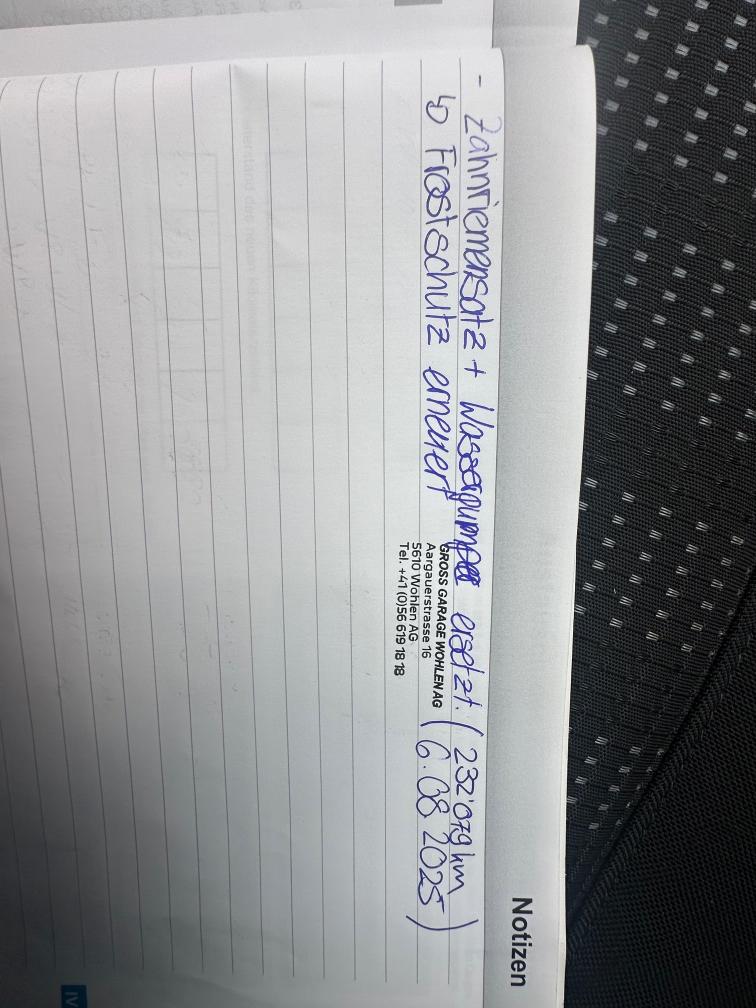 Notizen
- Zahnriemensatz + Wasserpumpe ersetzt. ( 232'079 km
↳ Frostschutz erneuert ( 6.08 2025 )
GROSS GARAGE WOHLEN AG
Aargauerstrasse 16
5610 Wohlen AG
Tel. +41 (0)56 619 18 18
IV